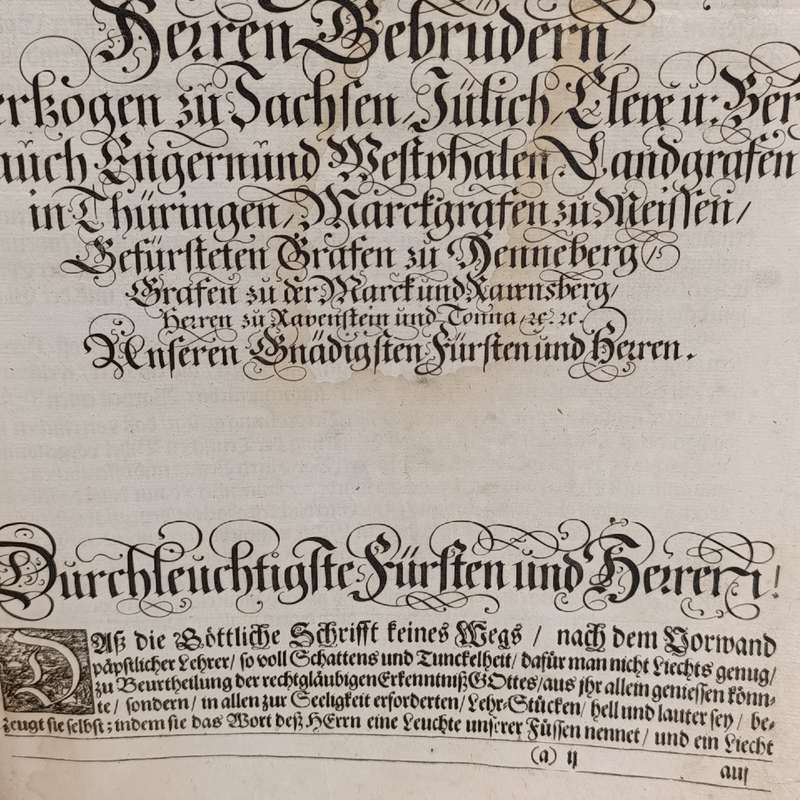 Herren Gebrüdern/
ertzogen zu Sachsen/Jülich/Cleve u: Ber
auch Engern und Westphalen/Landgrafen
in Thüringen/Marckgrafen zu Meissen/
Gefürsteten Grafen zu Henneberg/
Grafen zu der Marck und Ravensberg/
Herren zu Ravenstein und Tonna/ꝛc. ꝛc.
Unseren Gnädigsten Fürsten und Herren.
Durchleuchtigste Fürsten und Herren!
DAß die Göttliche Schrifft keines Wegs / nach dem Vorwand
päpstlicher Lehrer/ so voll Schattens und Tunckelheit/ dafür man nicht Liechts genug/
zu Beurtheilung der rechtgläubigen Erkenntniß GOttes/aus jhr allein geniessen könn-
te/ sondern/ in allen zur Seeligkeit erforderten/ Lehr-Stücken/ hell und lauter sey/ be-
zeugt sie selbst; indem sie das Wort deß HErrn eine Leuchte unserer Füssen nennet/ und ein Liecht
(a) ij
auf